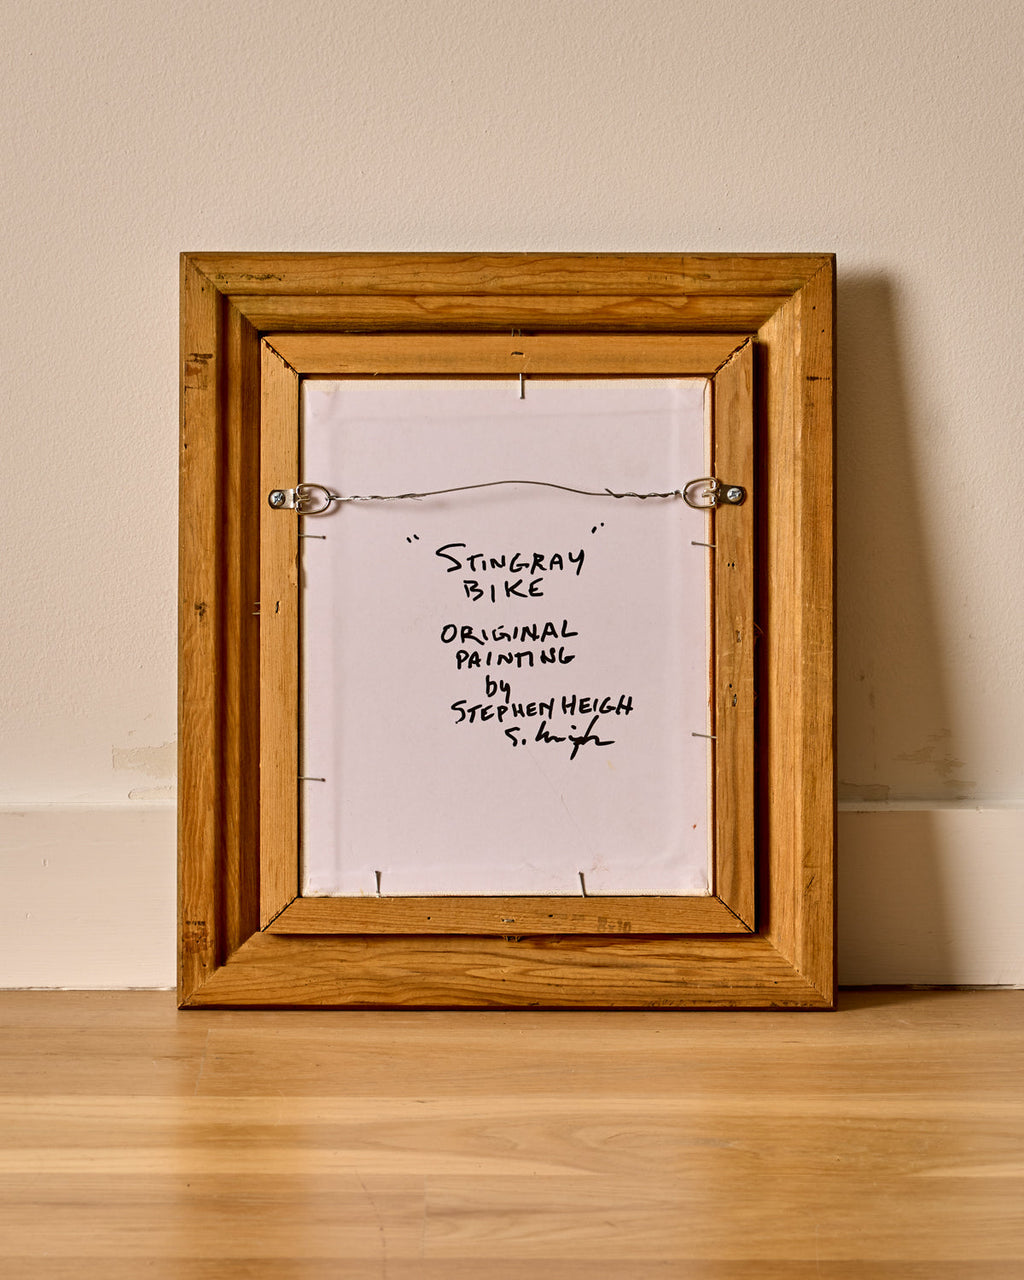 "STINGRAY"
BIKE
ORIGINAL
PAINTING
by
STEPHEN HEIGH
S. Heigh